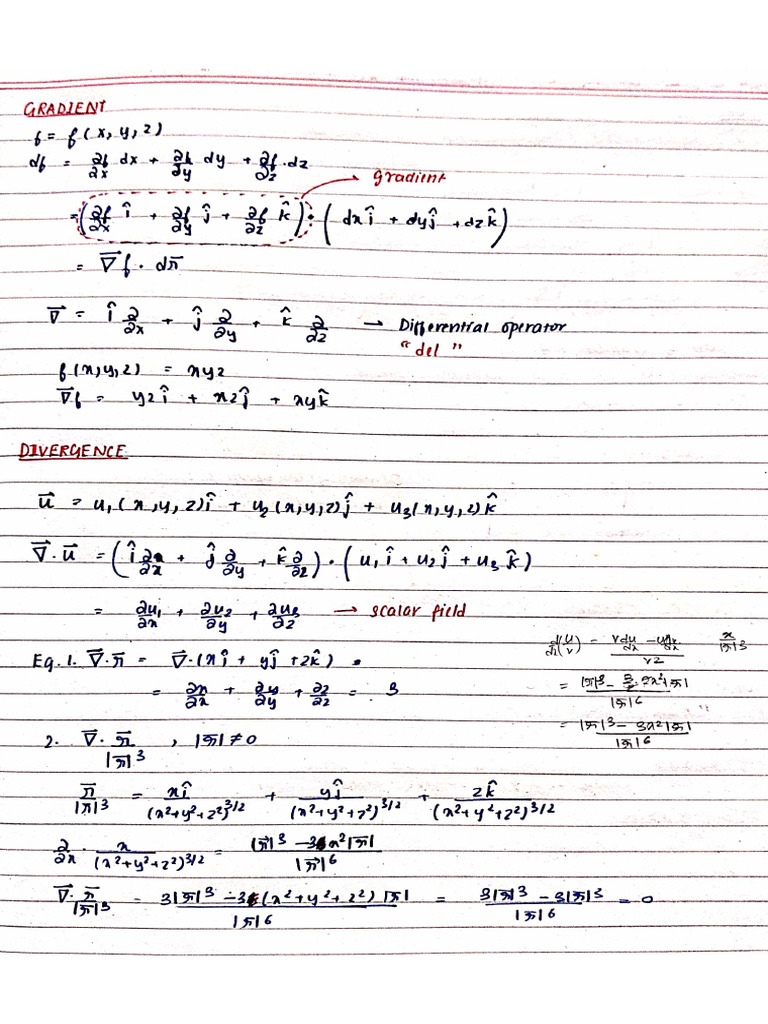 GRADIENT
f = f(x, y, z)
df = ∂f/∂x dx + ∂f/∂y dy + ∂f/∂z · dz
gradient
= (∂f/∂x î + ∂f/∂y ĵ + ∂f/∂z k̂) · (dx î + dy ĵ + dz k̂)
= ∇⃗f · dr⃗
∇⃗ = î ∂/∂x + ĵ ∂/∂y + k̂ ∂/∂z → Differential operator
"del"
f(x, y, z) = xyz
∇⃗f = yz î + xz ĵ + xy k̂
DIVERGENCE
u⃗ = u₁(x, y, z) î + u₂(x, y, z) ĵ + u₃(x, y, z) k̂
∇⃗ · u⃗ = (î ∂/∂x + ĵ ∂/∂y + k̂ ∂/∂z) · (u₁ î + u₂ ĵ + u₃ k̂)
= ∂u₁/∂x + ∂u₂/∂y + ∂u₃/∂z → scalar field
Eg. 1. ∇⃗ · r⃗ = ∇⃗ · (x î + y ĵ + z k̂)
= ∂x/∂x + ∂y/∂y + ∂z/∂z = 3
d/dx (u/v) = (v du/dx − u dv/dx)/v² x/|r|³
= (|r|³ − 3/2 · 2x²|r|)/|r|⁶
= (|r|³ − 3x²|r|)/|r|⁶
2. ∇⃗ · r⃗/|r⃗|³ , |r⃗| ≠ 0
r⃗/|r⃗|³ = x î/(x² + y² + z²)^3/2 + y ĵ/(x² + y² + z²)^3/2 + z k̂/(x² + y² + z²)^3/2
∂/∂x · x/(x² + y² + z²)^3/2 = (|r⃗|³ − 3x²|r⃗|)/|r⃗|⁶
∇⃗ · r⃗/|r⃗|³ = (3|r⃗|³ − 3(x² + y² + z²)|r⃗|)/|r⃗|⁶ = (3|r⃗|³ − 3|r⃗|³)/|r⃗|⁶ = 0